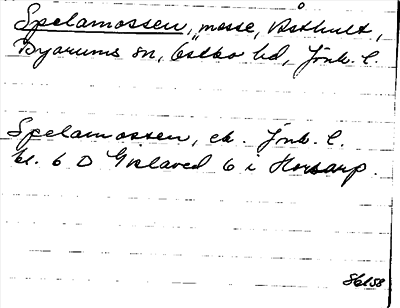 Spelamossen, mosse, Åsthult,
Byarums sn, Östbo hd, Jönk. l.
Spelamossen, ek. Jönk. l.
bl. 6 D Gislaved 6 i Horsarp.